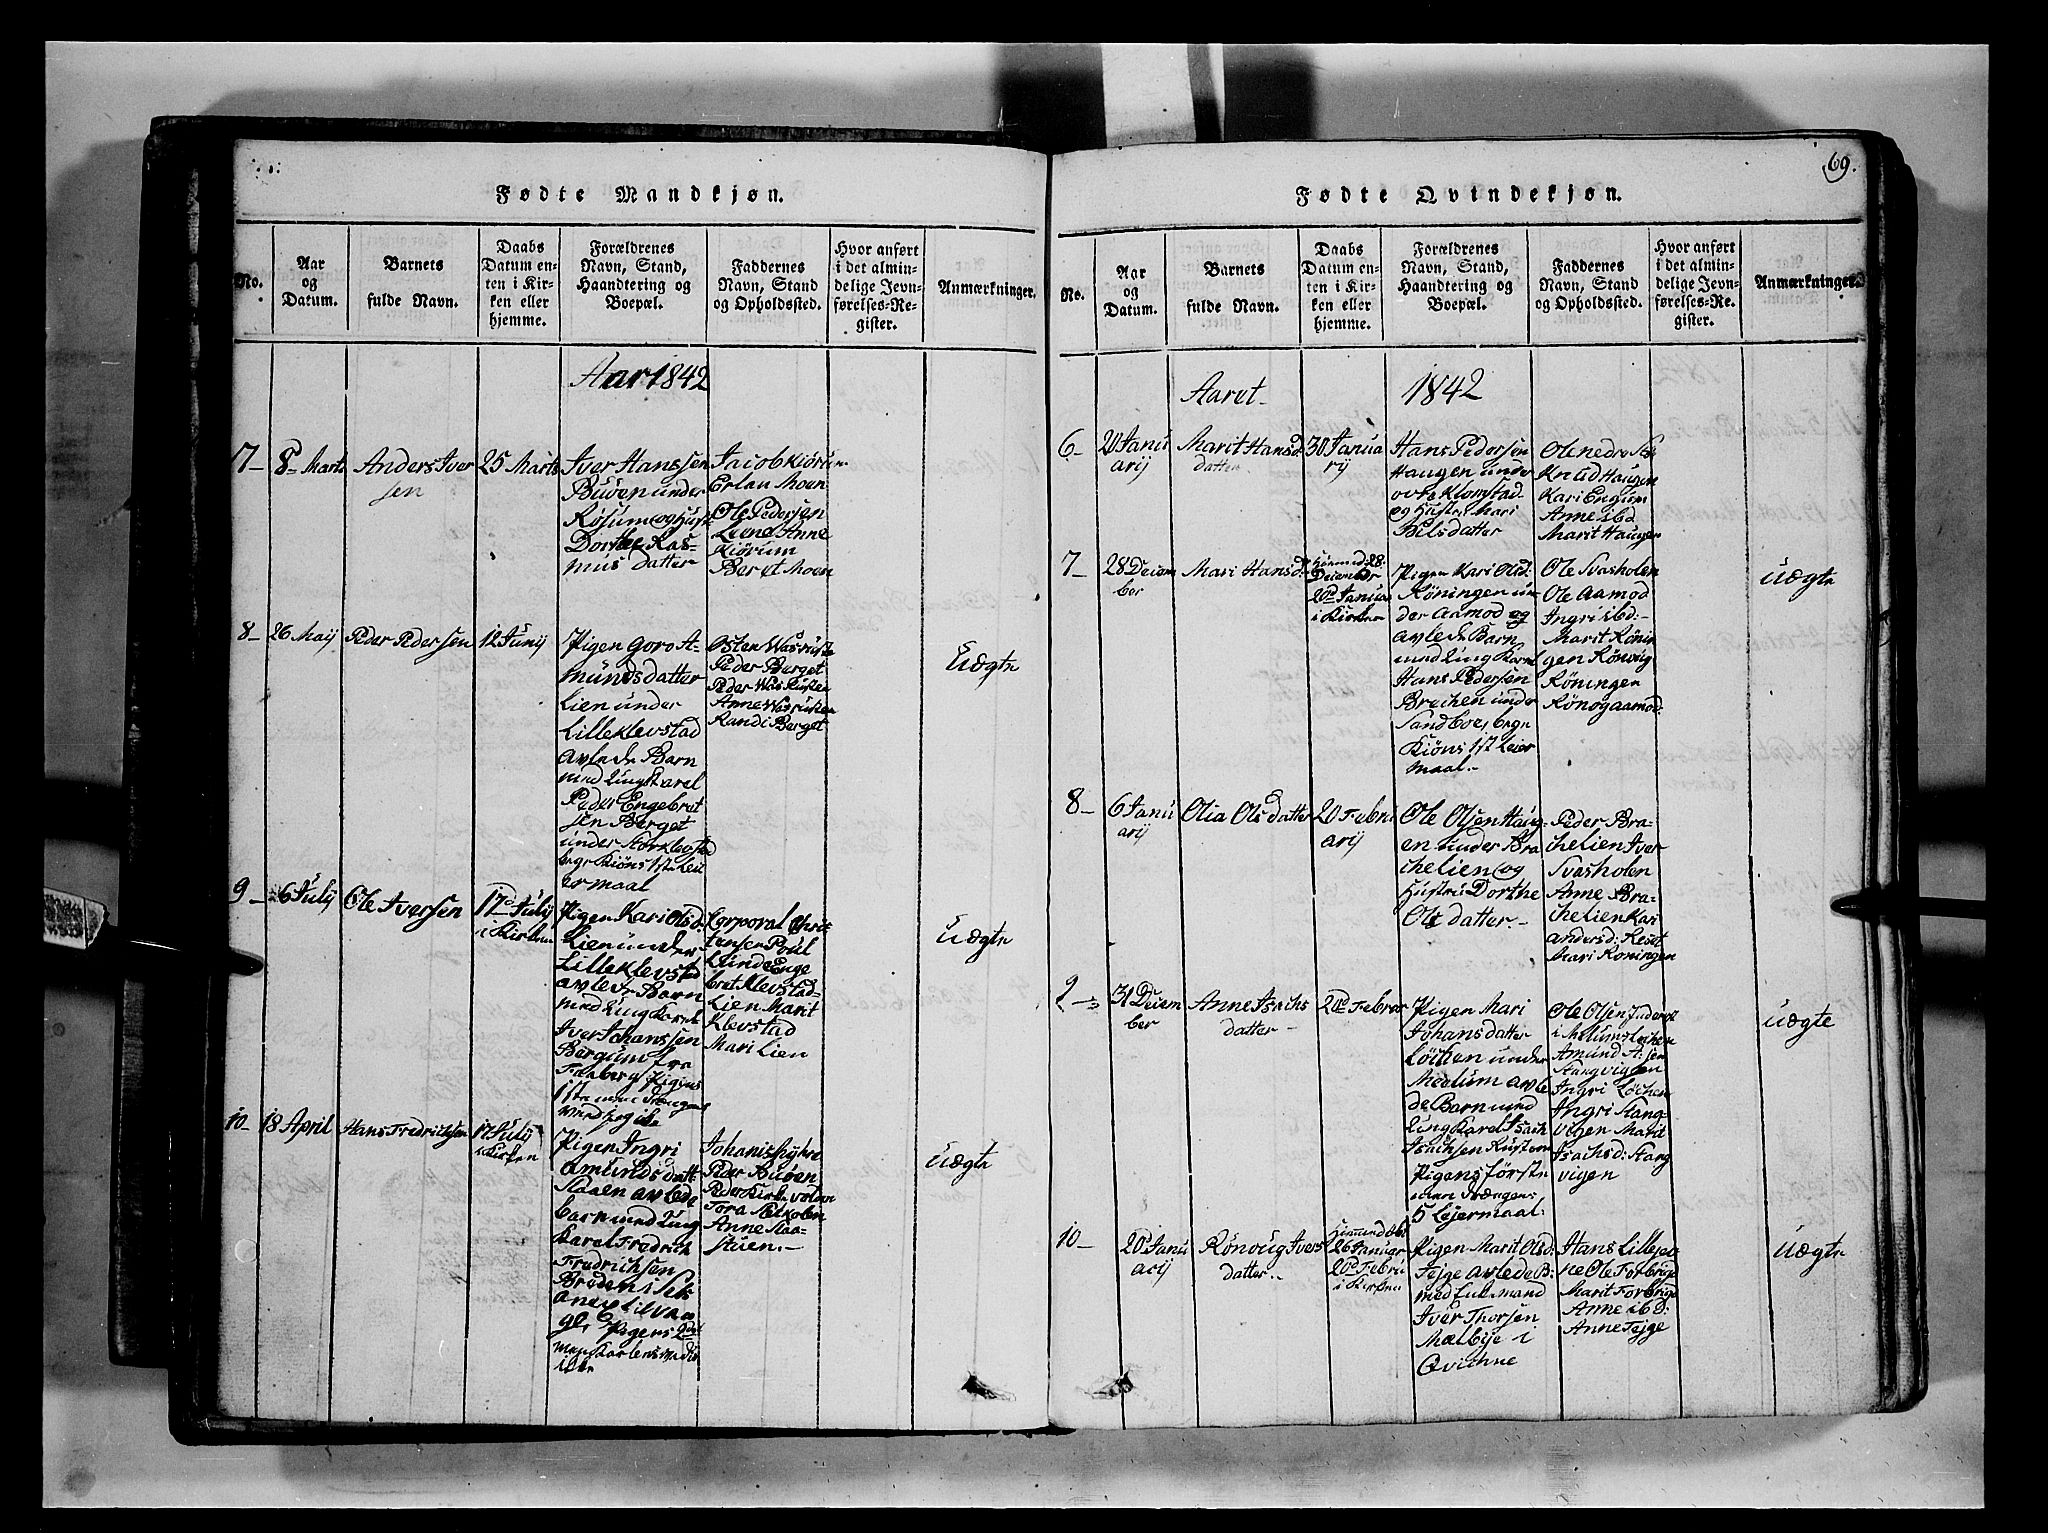 Fødte Mandkjøn.
No.
Aar
og
Datum.
Barnets
fulde Navn.
Daabs
Datum en-
ten i Kir-
ken eller
hjemme.
Forældrenes
Navn, Stand,
Haandtering og
Boepæl.
Faddernes
Navn, Stand
og Opholdssted.
Hvor anført
i det almin-
delige Jevn-
førelses-Re-
gister.
Anmærkninger.
Aar 1842
7-
8- Marts
Anders Iver
sen
25 Marts
Iver Hanssen
Buven under
Røsum og Hust
Dorthe Ras-
mus datter
Jacob Kiörum
Erlau Moen
Ole Pedersen
Lund Anne
Kiörum
Berot Moen
8-
26 Maij
Peder Pedersen
12 Junij
Pigen Goro A-
mundsdatter
Lien under
Lilleklevstad
avlede Barn
med Ungkarel
Peder Engebret
sen Berget
under Storklevstad
begge Kiöns 1ste Lei
ermaal
Østen Wasrusten
Peder Berget
Peder Wasrusten
Anne Wasrusten
Randi Berget
Uægte
9-
6 July
Ole Iversen
17de July
i Kirken
Pigen Kari Olsd:
Lien under
Lilleklevstad
avlede Barn
med Ungkarel
Iver Johanssen
Bergum fra
Faaberg Pigens
1ste men Drengens
vides ikke
Corporal Chris
tensen Poul
Lunde Enge
bret Klevstad-
Lien Marit
Klevstad
Mari Lien
Uægte
10-
18 April
Hans Fredrichsen
17 July
i Kirken
Pigen Ingri
Amunds datt
Slaaen avlede
barn med Ung
karel Fredrich
Fredrichsen
Breden i Sels
Pigens 2det
men Karlens vides
ikke
Johanis
Peder Buven
Peder Kirkevolden
Tora Selkolen
Anne Slaa-
stuen.-
Uægte
69.
Fødte Qvindekjøn.
No.
Aar
og
Datum.
Barnets
fulde Navn.
Daabs
Datum en-
ten i Kir-
ken eller
hjemme.
Forældrenes
Navn, Stand,
Haandtering og
Boepæl.
Faddernes
Navn, Stand
og Opholdssted.
Hvor anført
i det almin-
delige Jevn-
førelses-Re-
gister.
Anmærkninger.
Aaret 1842
6-
20 Janu
arij
Marit Hans
datter
30 Janua
rij
Hans Pedersen
Haugen under
ovre Klomstad
og Hustru Mari
Pelsdatter
Ole nedre
Knud Haugen
Kari Engum
Anne ibd
Marit Haugen
7-
28 Decem
ber
Mari Hansd:
Hiemmed 28
December
20de Janua
i Kirken
Pigen Kari Olsd:
Röningen un
der Aamod og
avlede Barn
med Ungkarel
Hans Pedersen
Brechen under
Sandboe, begge
Kiöns 1ste Leier
maal.-
Ole Svasholen
Ole Aamod
Ingri ibd:-
Marit Rönin
gen Rönvug
Röningen
Rönog Aamod:
Uægte
8-
6 Janu
arij
Olia Ols datter
20 Febru
arij
Ole Olsen Haug-
en under Bra
chelien og
Hustru Dorthe
Ole datter.-
Peder Bra-
chelien Iver
Svasholen
Anne Bra-
chelien Kari
Andersd: Reset
Mari Roningen
9-
31 Decem
ber
Anne Isachs
datter-
20de Februar
Pigen Mari
Johansdatter
Löchen under
Melum avle
de Barn med
Ungkarel Isach
Isachsen Rusten
Pigens förste
men Drengens
5 Lejermaal.
Ole Olsen Inderst
i Melums Löchen
Amund A:sen
Hangvigen
Ingri Löchen
Ingri Hang-
vigen Marit
Isachsd: Hang
vigen
Uægte
10-
20de Janu
arij
Rönvug Ivers
datter.-
Hiemmed
26 Januar
20de Febru
i Kirken
Pigen Marit Olsd:
Tejge avlede B:
med Enkemand
Iver Thorsen
Mælbye i
Qvichne
Hans Lilleje
ne Ole Forbrige
Marit Forbrige
Anne ibd:
Anne Tejge
Uægte